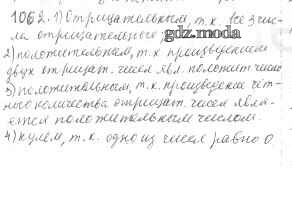 1062. 1) Отрицательным, т.к. все 3 чис-
ла отрицательного
gdz.moda
2) положительным, т.к. произведением
двух отрицат. чисел явл. положит. число
3) положительным, т.к. произведение чёт-
ные количества отрицат. чисел явля-
ется положительным числом.
4) нулём, т.к. одно из чисел равно 0.